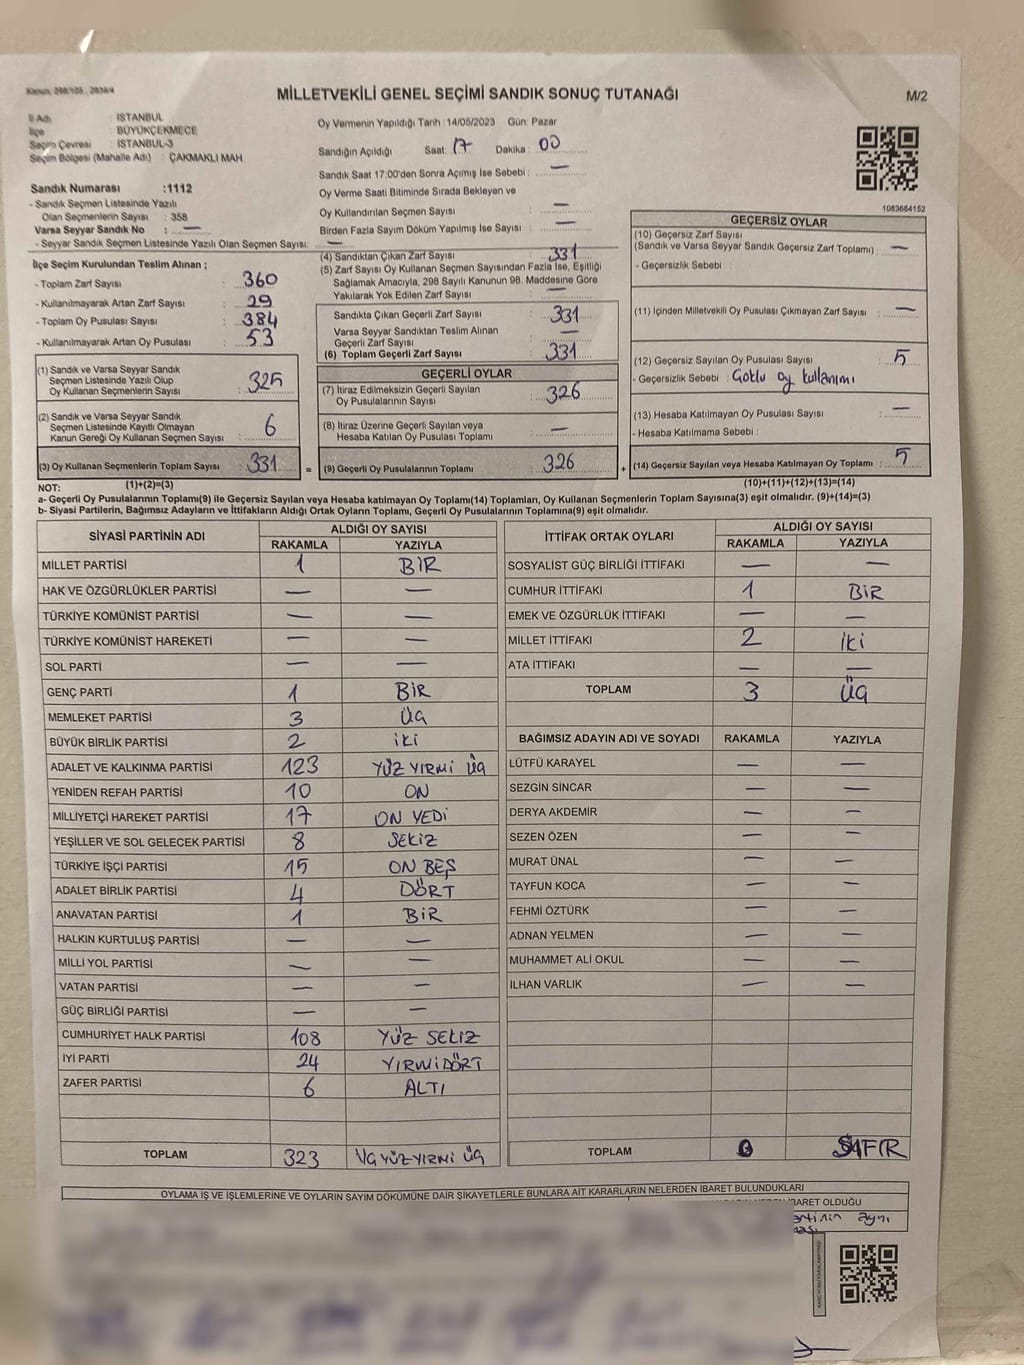 Kanun, 298/105 , 2839/4
MİLLETVEKİLİ GENEL SEÇİMİ SANDIK SONUÇ TUTANAĞI
M/2
İl Adı : İSTANBUL
İlçe : BÜYÜKÇEKMECE
Seçim Çevresi : İSTANBUL-3
Seçim Bölgesi (Mahalle Adı) : ÇAKMAKLI MAH.
Oy Vermenin Yapıldığı Tarih :14/05/2023 Gün: Pazar
Sandığın Açıldığı Saat: 17 Dakika : 00
Sandık Saat 17:00'den Sonra Açımış İse Sebebi : —
Oy Verme Saati Bitiminde Sırada Bekleyen ve
Oy Kullandırılan Seçmen Sayısı : —
Birden Fazla Sayım Döküm Yapılmış İse Sayısı : —
Sandık Numarası :1112
- Sandık Seçmen Listesinde Yazılı
Olan Seçmenlerin Sayısı : 358
Varsa Seyyar Sandık No : —
- Seyyar Sandık Seçmen Listesinde Yazılı Olan Seçmen Sayısı: —
1083684152
İlçe Seçim Kurulundan Teslim Alınan ;
- Toplam Zarf Sayısı : 360
- Kullanılmayarak Artan Zarf Sayısı : 29
- Toplam Oy Pusulası Sayısı : 384
- Kullanılmayarak Artan Oy Pusulası : 53
(1) Sandık ve Varsa Seyyar Sandık
Seçmen Listesinde Yazılı Olup
Oy Kullanan Seçmenlerin Sayısı : 325
(2) Sandık ve Varsa Seyyar Sandık
Seçmen Listesinde Kayıtlı Olmayan
Kanun Gereği Oy Kullanan Seçmen Sayısı : 6
(3) Oy Kullanan Seçmenlerin Toplam Sayısı : 331 =
(1)+(2)=(3)
(4) Sandıktan Çıkan Zarf Sayısı : 331
(5) Zarf Sayısı Oy Kullanan Seçmen Sayısından Fazla İse, Eşitliği
Sağlamak Amacıyla, 298 Sayılı Kanunun 98. Maddesine Göre
Yakılarak Yok Edilen Zarf Sayısı : —
Sandıkta Çıkan Geçerli Zarf Sayısı : 331
Varsa Seyyar Sandıktan Teslim Alınan
Geçerli Zarf Sayısı : —
(6) Toplam Geçerli Zarf Sayısı : 331
GEÇERLİ OYLAR
(7) İtiraz Edilmeksizin Geçerli Sayılan
Oy Pusulalarının Sayısı : 326
(8) İtiraz Üzerine Geçerli Sayılan veya
Hesaba Katılan Oy Pusulası Toplamı : —
(9) Geçerli Oy Pusulalarının Toplamı : 326 +
GEÇERSİZ OYLAR
(10) Geçersiz Zarf Sayısı
(Sandık ve Varsa Seyyar Sandık Geçersiz Zarf Toplamı) : —
- Geçersizlik Sebebi :
(11) İçinden Milletvekili Oy Pusulası Çıkmayan Zarf Sayısı : —
(12) Geçersiz Sayılan Oy Pusulası Sayısı : 5
- Geçersizlik Sebebi : Çoklu oy kullanımı
(13) Hesaba Katılmayan Oy Pusulası Sayısı : —
- Hesaba Katılmama Sebebi :
(14) Geçersiz Sayılan veya Hesaba Katılmayan Oy Toplamı : 5
(10)+(11)+(12)+(13)=(14)
NOT:
a- Geçerli Oy Pusulalarının Toplamı(9) ile Geçersiz Sayılan veya Hesaba katılmayan Oy Toplamı(14) Toplamları, Oy Kullanan Seçmenlerin Toplam Sayısına(3) eşit olmalıdır. (9)+(14)=(3)
b- Siyasi Partilerin, Bağımsız Adayların ve İttifakların Aldığı Ortak Oyların Toplamı, Geçerli Oy Pusulalarının Toplamına(9) eşit olmalıdır.
SİYASİ PARTİNİN ADI ALDIĞI OY SAYISI
RAKAMLA YAZIYLA
MİLLET PARTİSİ 1 BİR
HAK VE ÖZGÜRLÜKLER PARTİSİ — —
TÜRKİYE KOMÜNİST PARTİSİ — —
TÜRKİYE KOMÜNİST HAREKETİ — —
SOL PARTİ — —
GENÇ PARTİ 1 BİR
MEMLEKET PARTİSİ 3 Üç
BÜYÜK BİRLİK PARTİSİ 2 İKİ
ADALET VE KALKINMA PARTİSİ 123 YÜZ YİRMİ ÜÇ
YENİDEN REFAH PARTİSİ 10 ON
MİLLİYETÇİ HAREKET PARTİSİ 17 ON YEDİ
YEŞİLLER VE SOL GELECEK PARTİSİ 8 SEKİZ
TÜRKİYE İŞÇİ PARTİSİ 15 ON BEŞ
ADALET BİRLİK PARTİSİ 4 DÖRT
ANAVATAN PARTİSİ 1 BİR
HALKIN KURTULUŞ PARTİSİ — —
MİLLİ YOL PARTİSİ — —
VATAN PARTİSİ — —
GÜÇ BİRLİĞİ PARTİSİ — —
CUMHURİYET HALK PARTİSİ 108 YÜZ SEKİZ
İYİ PARTİ 24 YİRMİDÖRT
ZAFER PARTİSİ 6 ALTI
TOPLAM 323 ÜÇYÜZYİRMİ ÜÇ
İTTİFAK ORTAK OYLARI ALDIĞI OY SAYISI
RAKAMLA YAZIYLA
SOSYALİST GÜÇ BİRLİĞİ İTTİFAKI — —
CUMHUR İTTİFAKI 1 BİR
EMEK VE ÖZGÜRLÜK İTTİFAKI — —
MİLLET İTTİFAKI 2 İKİ
ATA İTTİFAKI — —
TOPLAM 3 ÜÇ
BAĞIMSIZ ADAYIN ADI VE SOYADI RAKAMLA YAZIYLA
LÜTFÜ KARAYEL — —
SEZGİN SİNCAR — —
DERYA AKDEMİR — —
SEZEN ÖZEN — —
MURAT ÜNAL — —
TAYFUN KOCA — —
FEHMİ ÖZTÜRK — —
ADNAN YELMEN — —
MUHAMMET ALİ OKUL — —
İLHAN VARLIK — —
TOPLAM 0 SAFIR
OYLAMA İŞ VE İŞLEMLERİNE VE OYLARIN SAYIM DÖKÜMÜNE DAİR ŞİKAYETLERLE BUNLARA AİT KARARLARIN NELERDEN İBARET BULUNDUKLARI
İBARET OLDUĞU
aynı